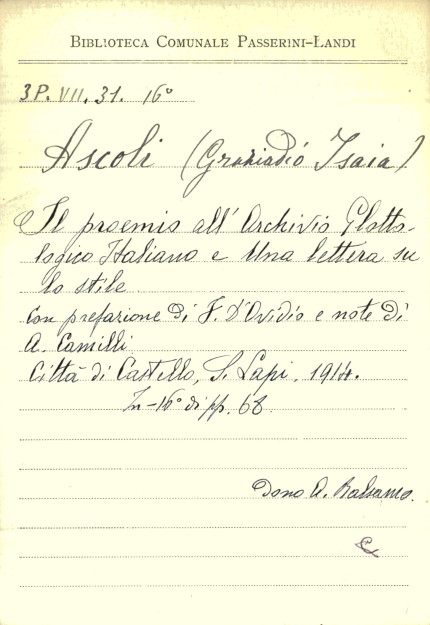 BIBLIOTECA COMUNALE PASSERINI-LANDI
3P. VII. 31. 16°
Ascoli (Graziadio Isaia)
Il proemio all'Archivio Glotto-
logico Italiano e Una lettera su
lo stile
Con prefazione di F. D'Ovidio e note di
A. Camilli
Città di Castello, S. Lapi, 1914.
In-16° di pp. 68.
Dono A. Balsamo.